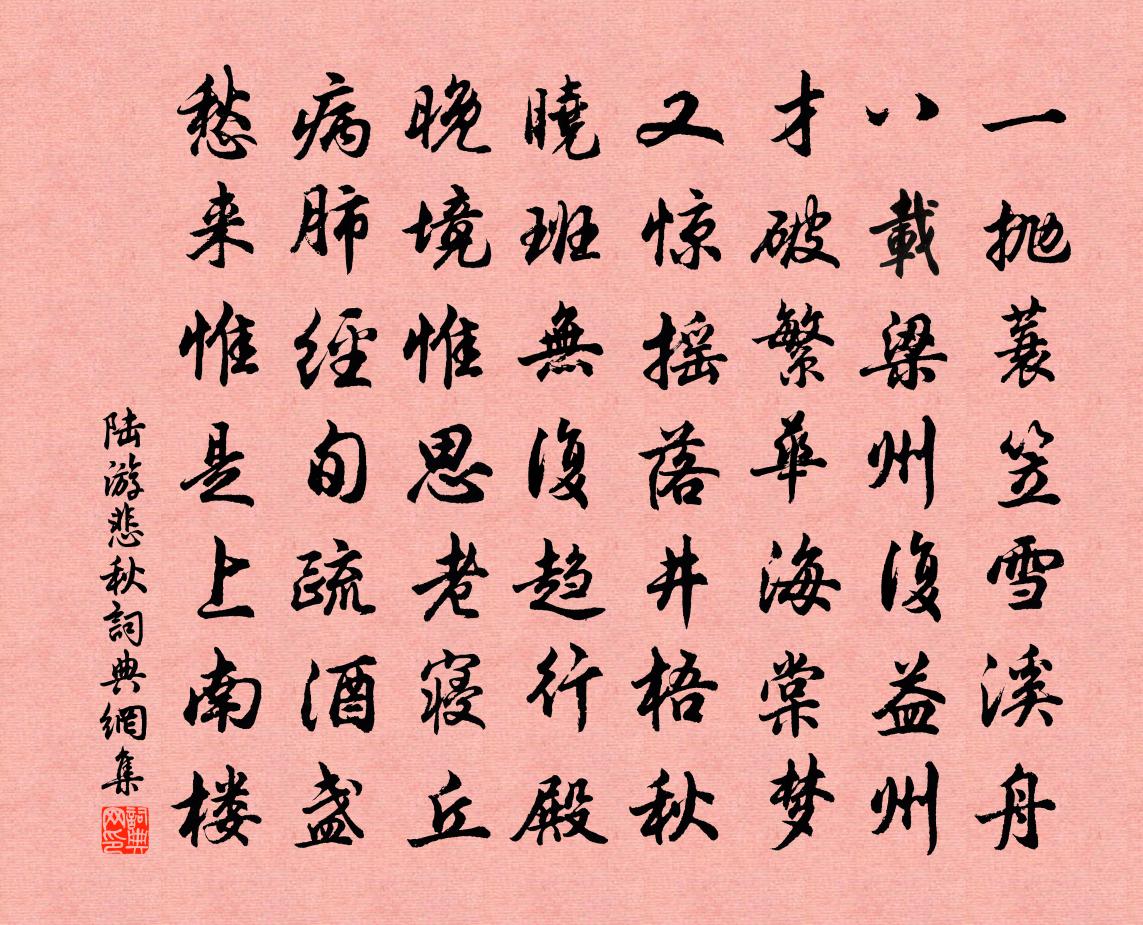 一抛蓑笠雪溪舟
八載梁州復益州
才破繁華海棠梦
又惊摇落井梧秋
曉班無復趋行殿
晚境惟思老寝丘
病肺經旬疏酒盏
愁来惟是上南楼
陆游悲秋詞典網集
詞典网印